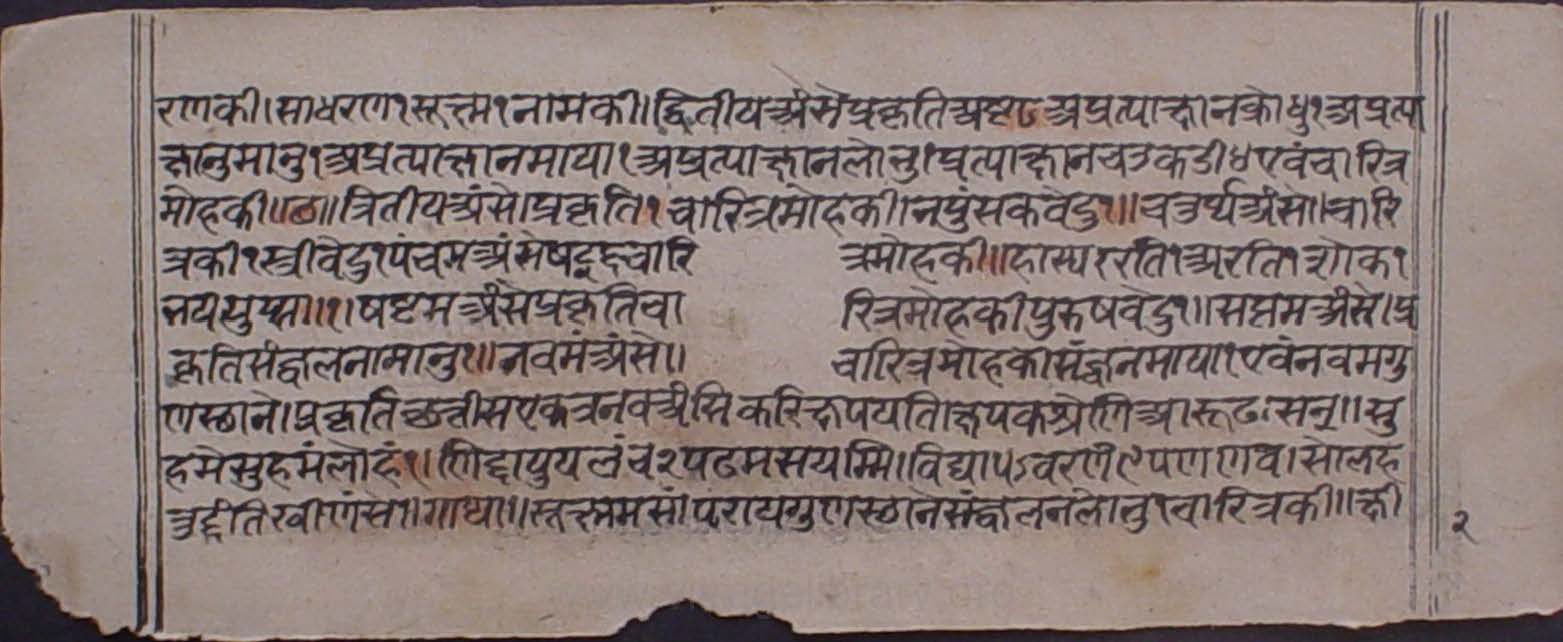 रणकी।साधरण१सूक्ष्म१नामकी॥द्वितीयअंसेप्रकृतिअष्ट८अप्रत्याक्षानक्रोधु१अप्रत्या
क्षानुमानु१अप्रत्याक्षानमाया१अप्रत्याक्षानलोभु१प्रत्याक्षानचउकडी४एवंचारित्र
मोहकी॥८॥त्रितीयअंसे।प्रकृति१चारित्रमोहकी।नपुंसकवेदु१॥चतुर्थअंसे॥चारि
त्रकी१स्त्रीवेदु१पंचमअंसेषट्६चारि त्रमोहकी॥हास्य१रति१अरति१शोक१
भयजुगुप्सा॥१।षष्टमअंसेप्रकृतिचा रित्रमोहकीपुरुषवेदु१॥सप्तमअंसे।प्र
कृतिसंज्वलनामानु१॥नवमंअंसे॥ चारित्रमोहकीसंज्वनमाया१एवंनवमगु
णस्ठाने।प्रकृतिछत्तीसएकत्रनवअंसिकरिक्षपयति।क्षपकश्रेणिआरूढःसन्॥सु
हमेसुहमंलोहं१॥णिद्दापुयलंच२पढमसयम्मि।विद्यापऽवरणं९पणणव।सोलह
त्रद्दंतिखीणंसो।गाथा॥सूक्ष्ममसांपरायगुणस्ठानेसंज्वलनलोभु१चारित्रकी॥क्षी
२